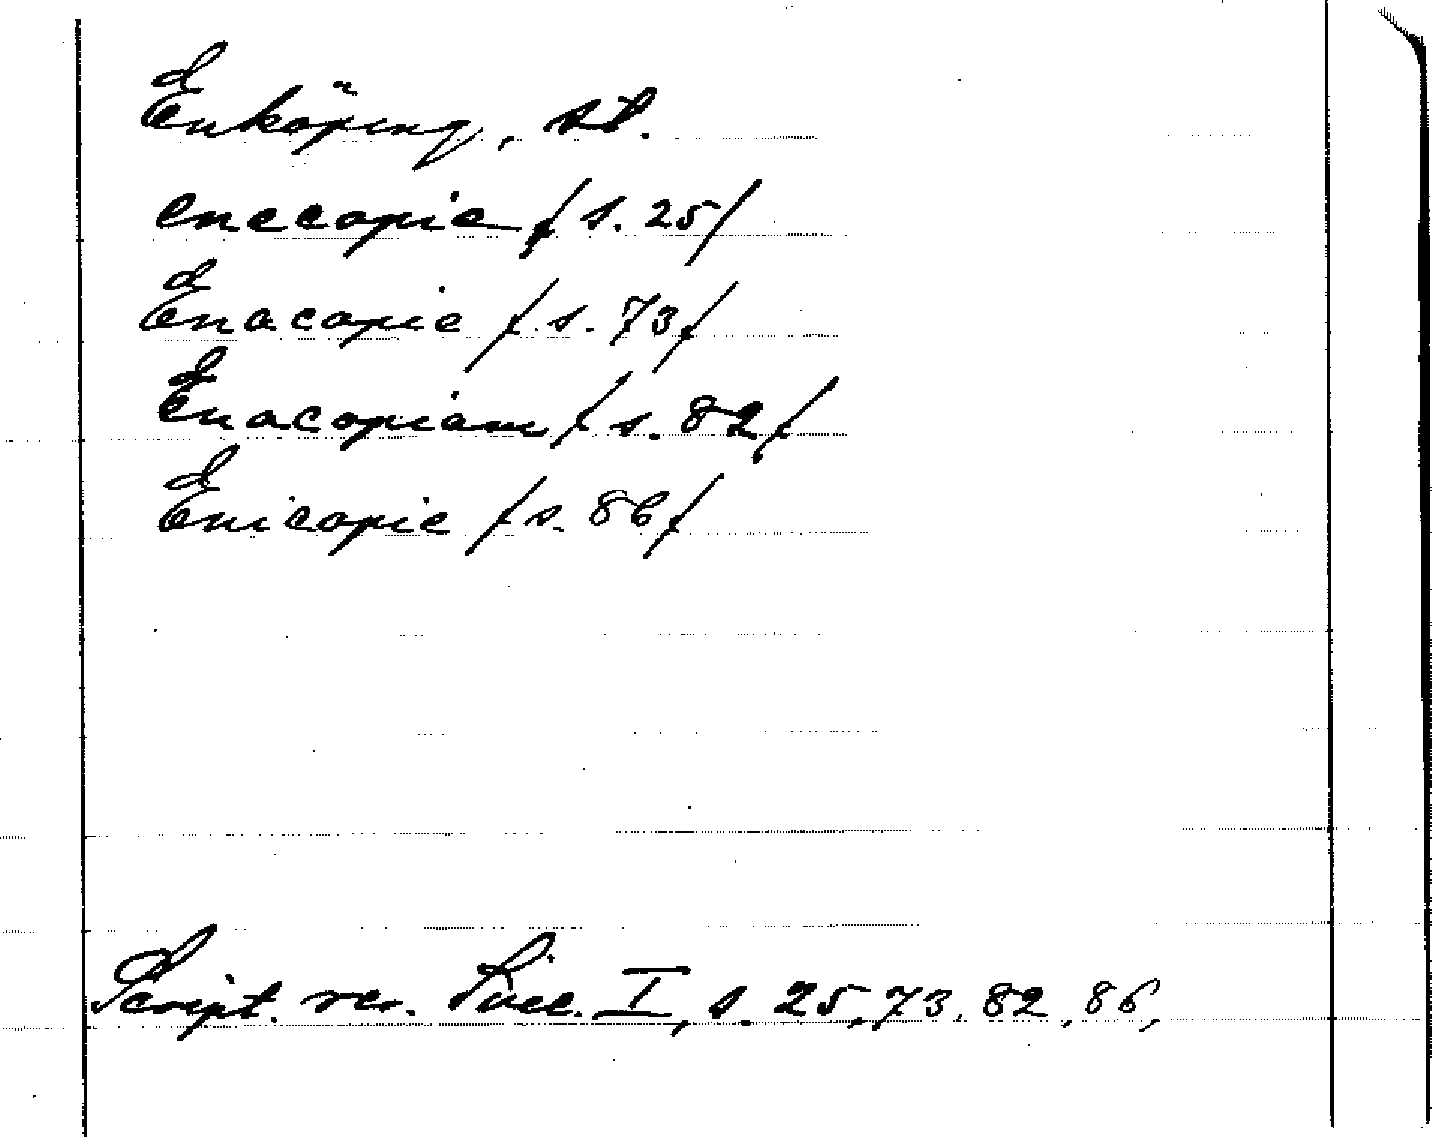 Enköping, st.
eneco­pie /s. 25/
Enacopie /s. 73/
Enacopiam /s. 82/
Enicopie /s. 86/
Script. rer. Svec. I, s. 25, 73, 82, 86,